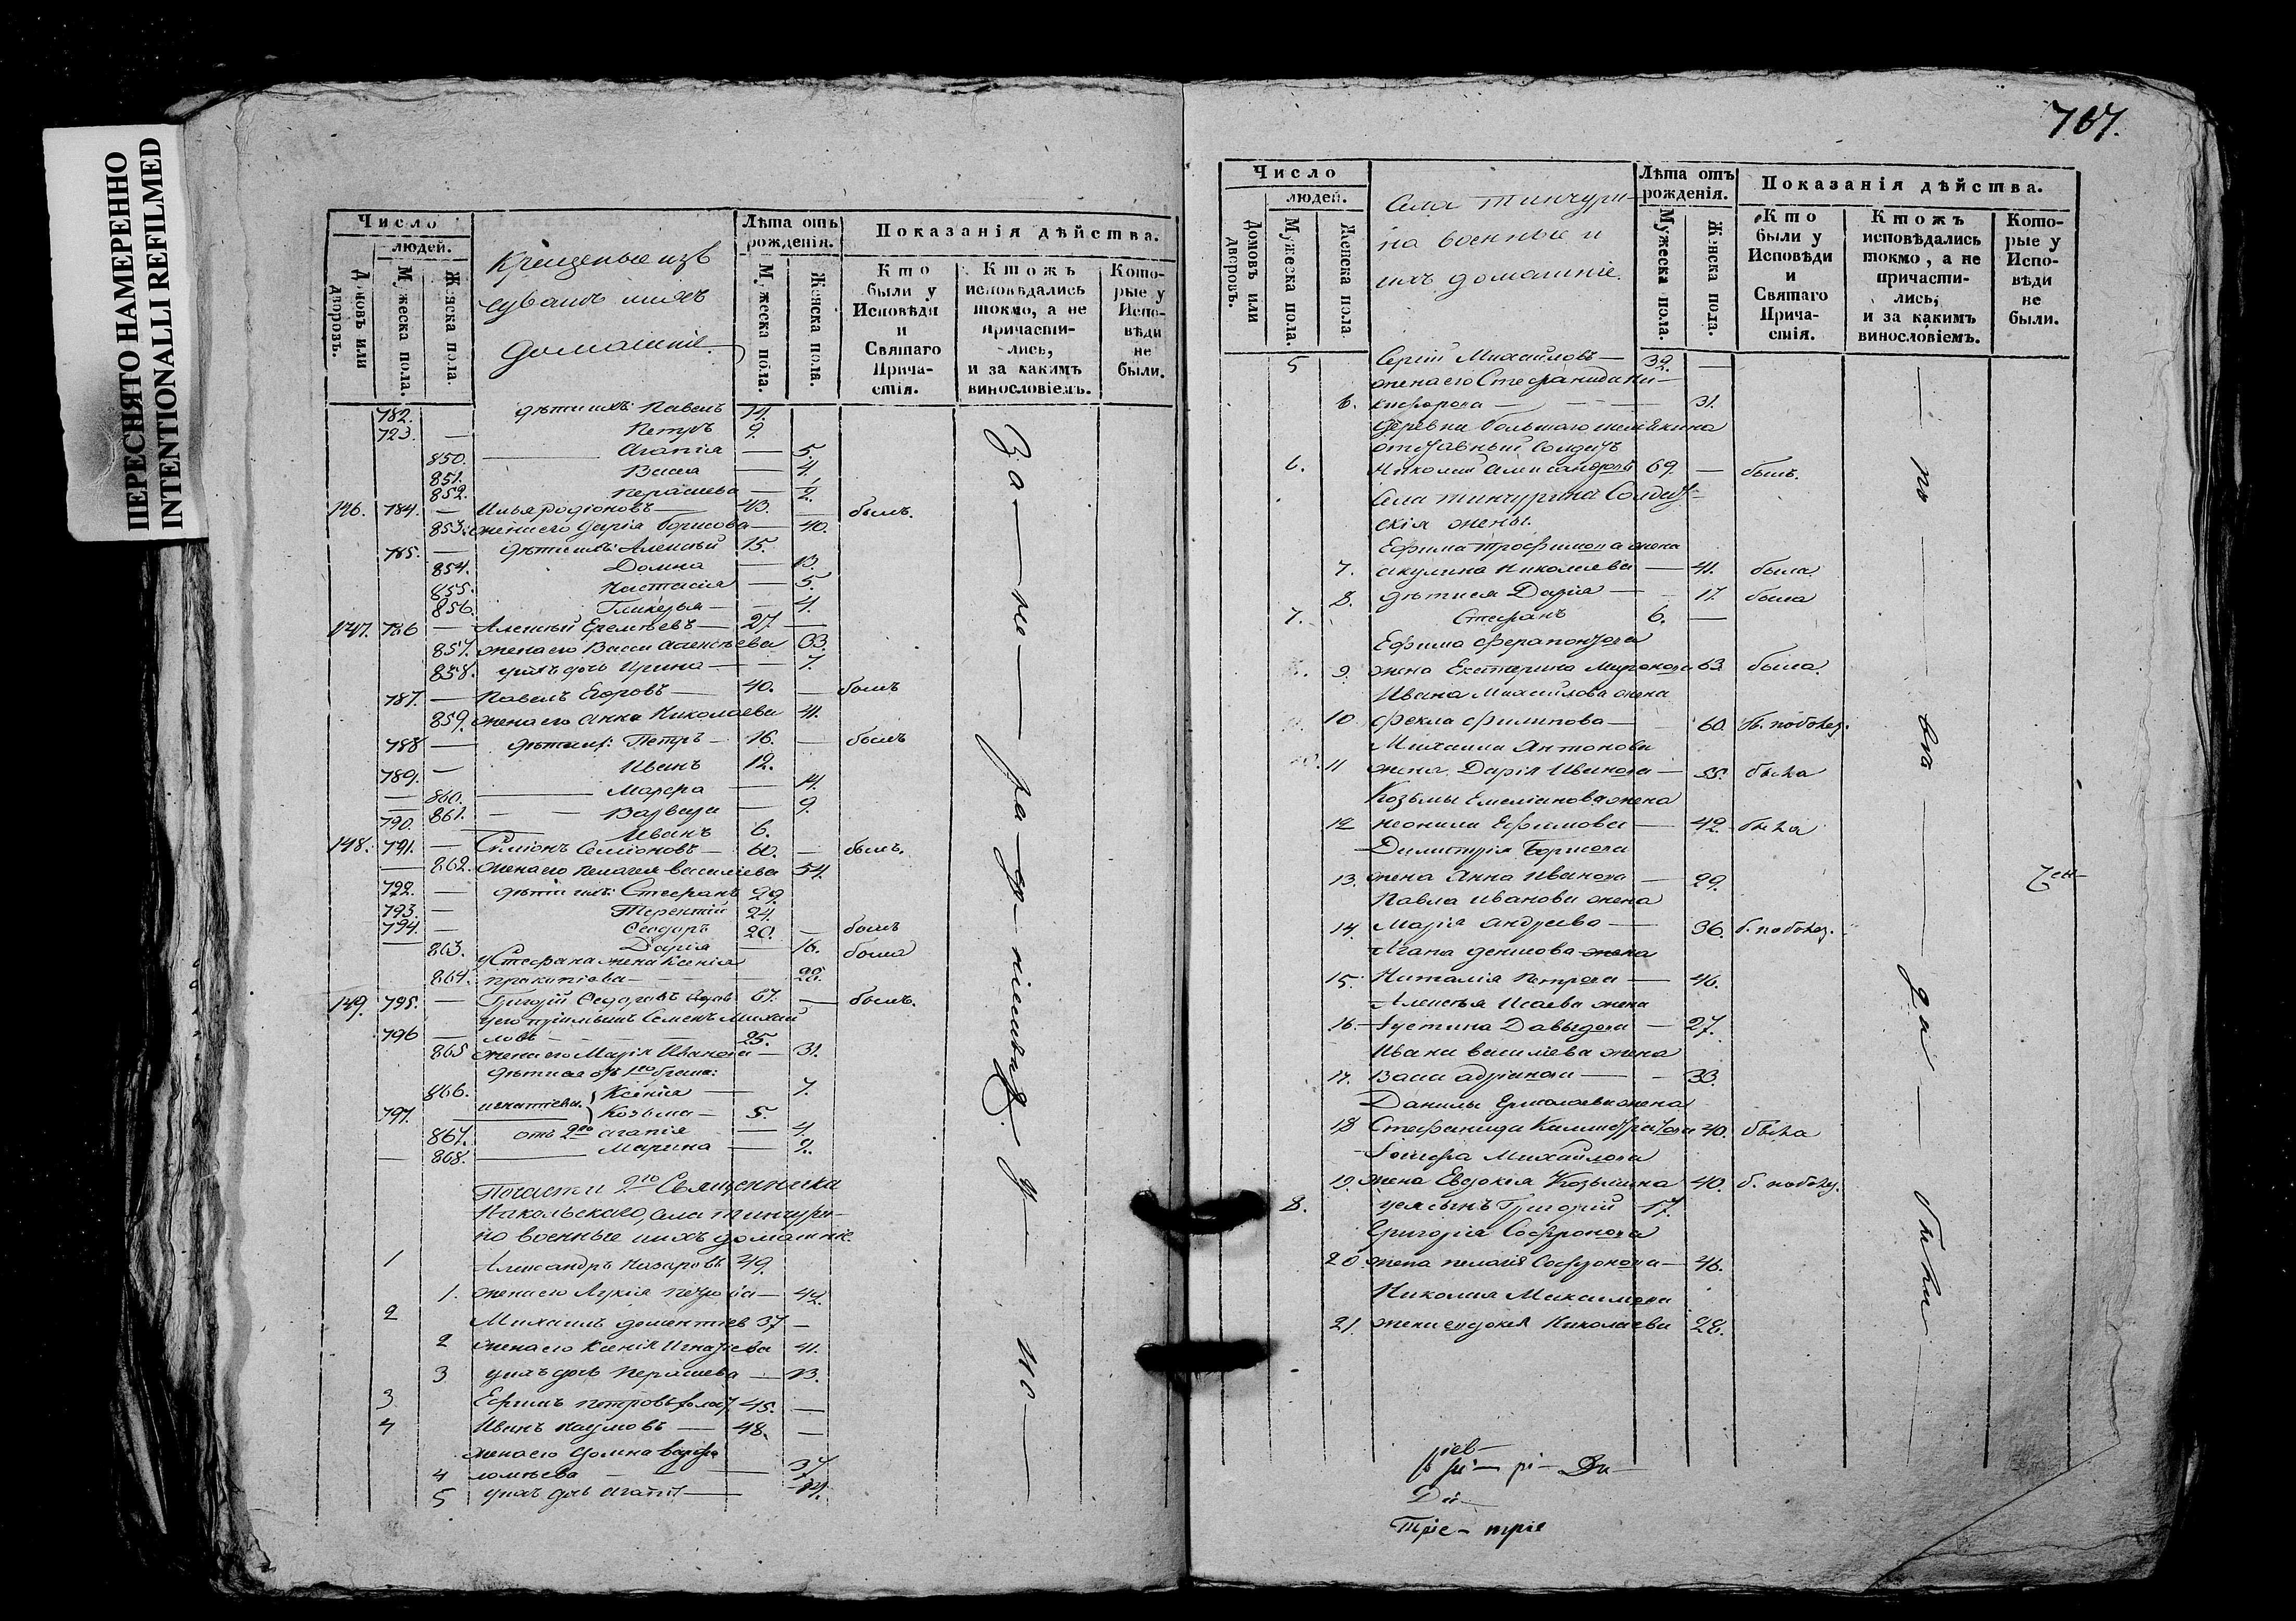 ПЕРЕСНЯТО НАМЕРЕННО
INTENTIONALLI REFILMED
Число
людей.
Домовъ или дворовъ.
Мужеска пола.
Женска пола.
Крещеные изъ
чувашъ и ихъ
домашніе
Лѣта отъ рожденія.
Мужеска пола.
Женска пола.
Показанія дѣйства.
Кто были у Исповѣди и Святаго Прича-стія.
Ктожъ исповѣдались токмо, а не причасти-лись, и за какимъ винословіемъ.
Кото-рые у Испо-вѣди не были.
782. дѣти ихъ: Павелъ 14.
723. — Петръ 9.
850. — Агапія — 5.
851. Васса — 4.
852. — 2.
146. 784. — Илья Родіоновъ — 43. — былъ.
853. жена его Дарія Борисова — 40.
785. — дѣти ихъ: Алексѣй 15.
854. Домна — 13.
855. Настасія — 5.
856. Гликерья — 4.
147. 786 — Алексѣй Еремѣевъ — 27. —
857. жена его Васса Алексѣева 33.
858. у нихъ дочь Ирина — 7.
787. — Павелъ Егоровъ — 40. — былъ
859. жена его Анна Николаева 41.
788 — дѣти ихъ: Петръ — 16. — былъ
789. — Иванъ 12.
860. — Марфа — 14.
861. — Варвара — 9.
790. — Иванъ 6.
148. 791. — Симіонъ Семіоновъ — 60. — былъ.
862. жена его Пелагея Василіева 54.
722. — дѣти ихъ: Стефанъ 29.
793. — Терентій 24.
794. — Ѳеодоръ 20. — былъ
863. Дарія — 16. была
у Стефана жена Ксенія
864. — 28.
149. 795. — Григорій Ѳедоровъ вдовъ 67. — былъ.
у его пріимышъ Семенъ Михай
796 — ловъ — 25.
865 жена его Марія Иванова — 31.
866. Ксенія — 7.
797. Козьма — 5.
867. отъ 2го Агапія — 4.
868. — Марина — 2.
По части 2го Священника
Никольскаго, села Тинчури-
но военные и ихъ домашніе.
1 Александръ Назаровъ 49.
1. жена его Лукія — 44.
2 Михаилъ 37 —
2 жена его Ксенія Игнатіева 41.
3 у нихъ дочь — 13.
3. Ефимъ Петровъ 45. —
4 Иванъ Наумовъ — 48. —
жена его Домна Варфо
4 ломѣева — 37
5 у нихъ дочь
За — не — ра — де — ніемъ
707.
Число
людей.
Домовъ или дворовъ.
Мужеска пола.
Женска пола.
Села Тинчури-
на военные и
ихъ домашніе.
Лѣта отъ рожденія.
Мужеска пола.
Женска пола.
Показанія дѣйства.
Кто были у Исповѣди и Святаго Прича-стія.
Ктожъ исповѣдались токмо, а не причасти-лись, и за какимъ винословіемъ.
Кото-рые у Испо-вѣди не были.
5 Сергій Михайловъ — 32. —
жена его Стефанида Ни-
6. кифорова — 31.
деревни Большаго Шемякина
отставный солдатъ
6. Николай Александровъ 69. — былъ.
Села Тинчурина Солдат-
скія жены.
Ефима Трофимова жена
7. Акулина Николаева — 41. была.
8. дѣти ея Дарія — 17. была
7. Стефанъ 6. —
Ефима Ферапонтова
9. жена Екатерина Миронова 63 была.
Ивана Михайлова жена
10 Фекла Филипова — 60.
Михаила Антонова
11 жена Дарія Иванова — 55. была
Козьмы Емелианова жена
12 Неонила Ефимова — 42. была
Димитрія Борисова
13. жена Анна Иванова — 29.
Павла Иванова жена
14. Марія Андреева — 36.
Денисова жена
15. Наталія Петрова — 46.
Алексѣя Исаева жена
16. Іустина Давыдова — 27.
Ивана Василіева жена
17. Васса — 33.
Данилы Ермолаева жена
18 Стефанида Калистратова 40. была
Іосифа Михайлова
19. жена Евдокія Козьмина 40.
8. у ея сынъ Григорій 17.
Григорія Софронова
20 жена Пелагія — 46.
Николая Максимова
21. жена Евдокія Николаева 28.